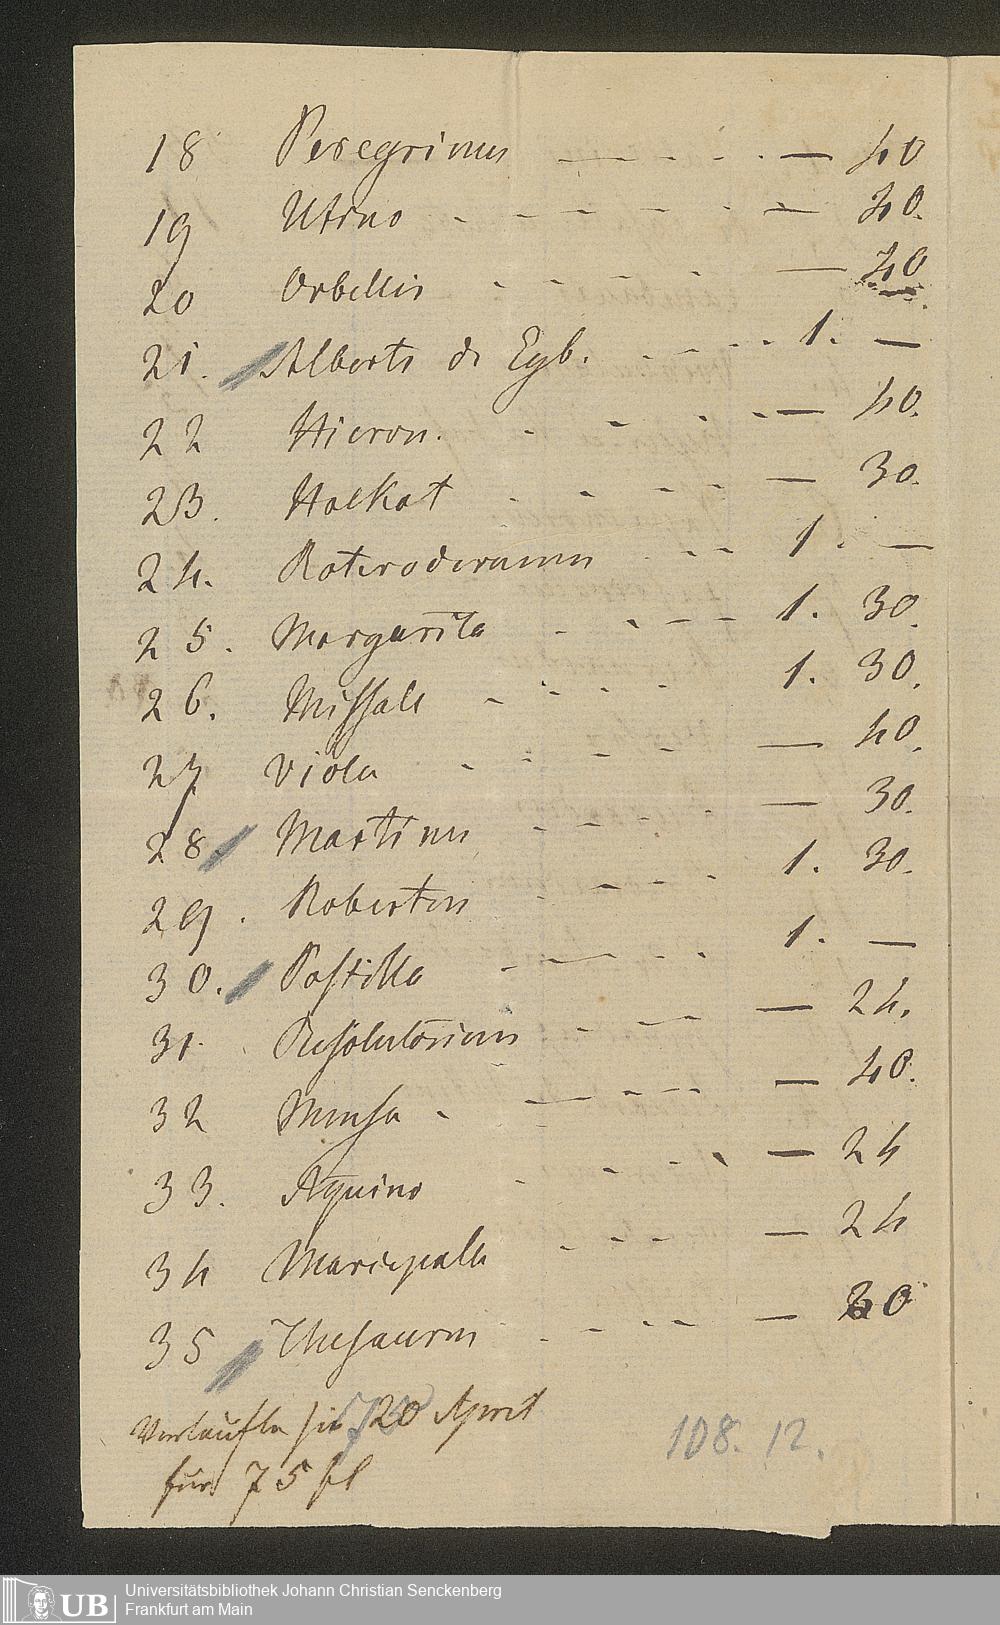 18 Peregrinus — - - - . — 40
19 Utino - - - - - - — 40.
20 Orbellis - - - — 40.
21. Alberti de Eyb. - - - - - 1. —
22 Hieron. - - - - - — 40.
23. Holkot - - - - - — 30.
24. Roterodamum - - - 1. —
25. Margarita - - - - 1. 30.
26. Missale - - - - 1. 30.
27 Viola - - - - - — 40.
28 Martinus - - - - — 30.
29. Robertus - - - - - 1. 30.
30. Postilla - — - - - 1. —
31. Resolutorium - - - — 24.
32 Mensa - — - - - — 40.
33. Aquino - - - - — 24
34 - - - - — 24
35 Thesaurus - - - - — 30
Verkaufte sie 20 April
für 75 fl
108. 12.
UB
Universitätsbibliothek Johann Christian Senckenberg
Frankfurt am Main